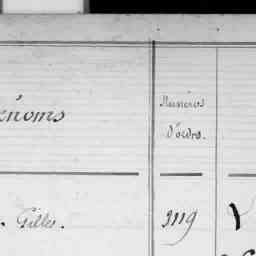 énoms
Numéros
d'ordre.
. Gilles.
3119